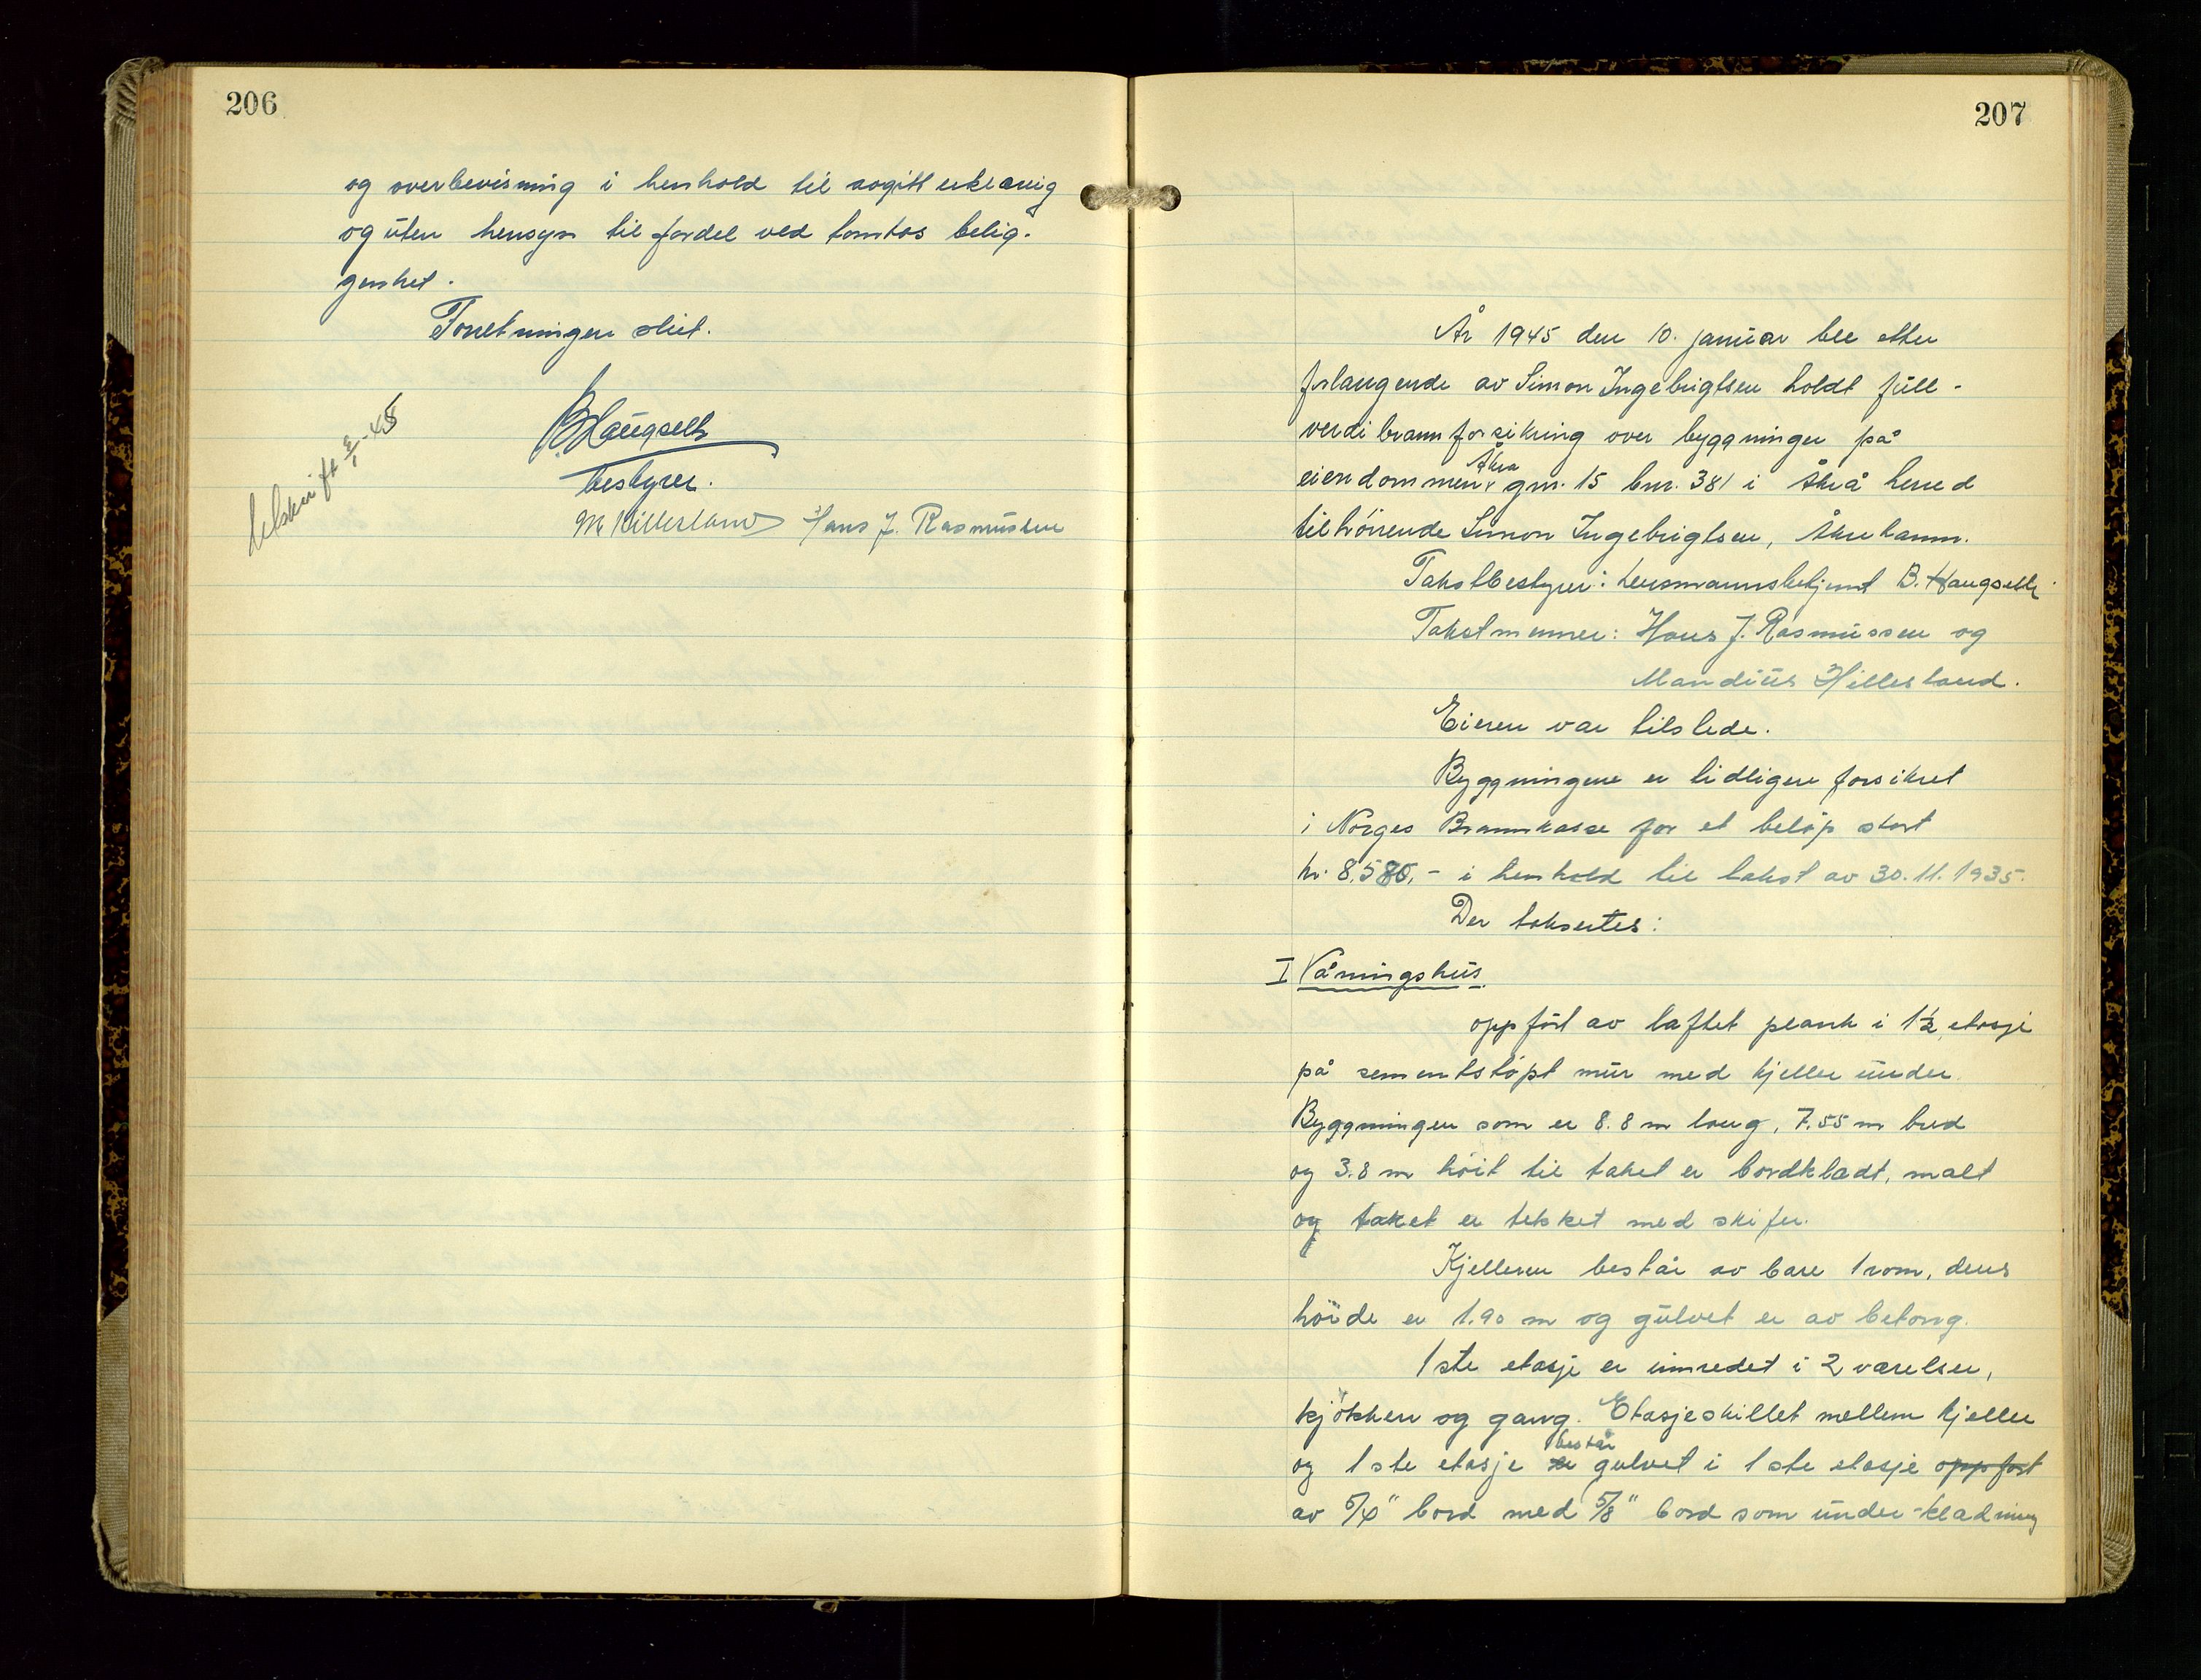 206
og overbevisning i henhold til avgitt erklæring
og uten hensyn til fordel ved tomtas belig-
genhet.
Forretningen slutt.
B Haugseth
bestyrer.
M Hillesland Hans J. Rasmussen
Utskrift -45
207
År 1945 den 10. januar ble etter
forlangende av Simon Ingebrigtsen holdt full-
verdi brannforsikring over bygninger på
eiendommen Åkra gnr. 15 bnr. 381 i Åkra herred
tilhörende Simon Ingebrigtsen, Åkrehamn.
Takstbestyrer: Lensmannsbetjent B. Haugseth
Takstmenner: Hans J. Rasmussen og
Mandius Hillesland.
Eieren var tilstede.
Byggningene er tidligere forsikret
i Norges Brannkasse for et belöp stort
kr. 8.580,- i henhold til takst av 30.11.1935.
Der taksertes:
I Våningshus
oppfört av laftet plank i 1½ etasje
på sementstöpt mur med kjeller under.
Byggningen som er 8.8 m lang, 7.55 m bred
og 3.8 m höit til taket er bordkladt, malt
og taket er tekket med skifer.
Kjelleren består av bare 1 rom, dens
höide er 1.90 m og gulvet er av betong.
1ste etasje er innredet i 2 værelser,
kjökken og gang. Etasjeskillet mellem kjeller
og 1ste etasje er består gulvet i 1ste etasje oppfört
av 5/4" bord med 5/8" bord som under-kledning